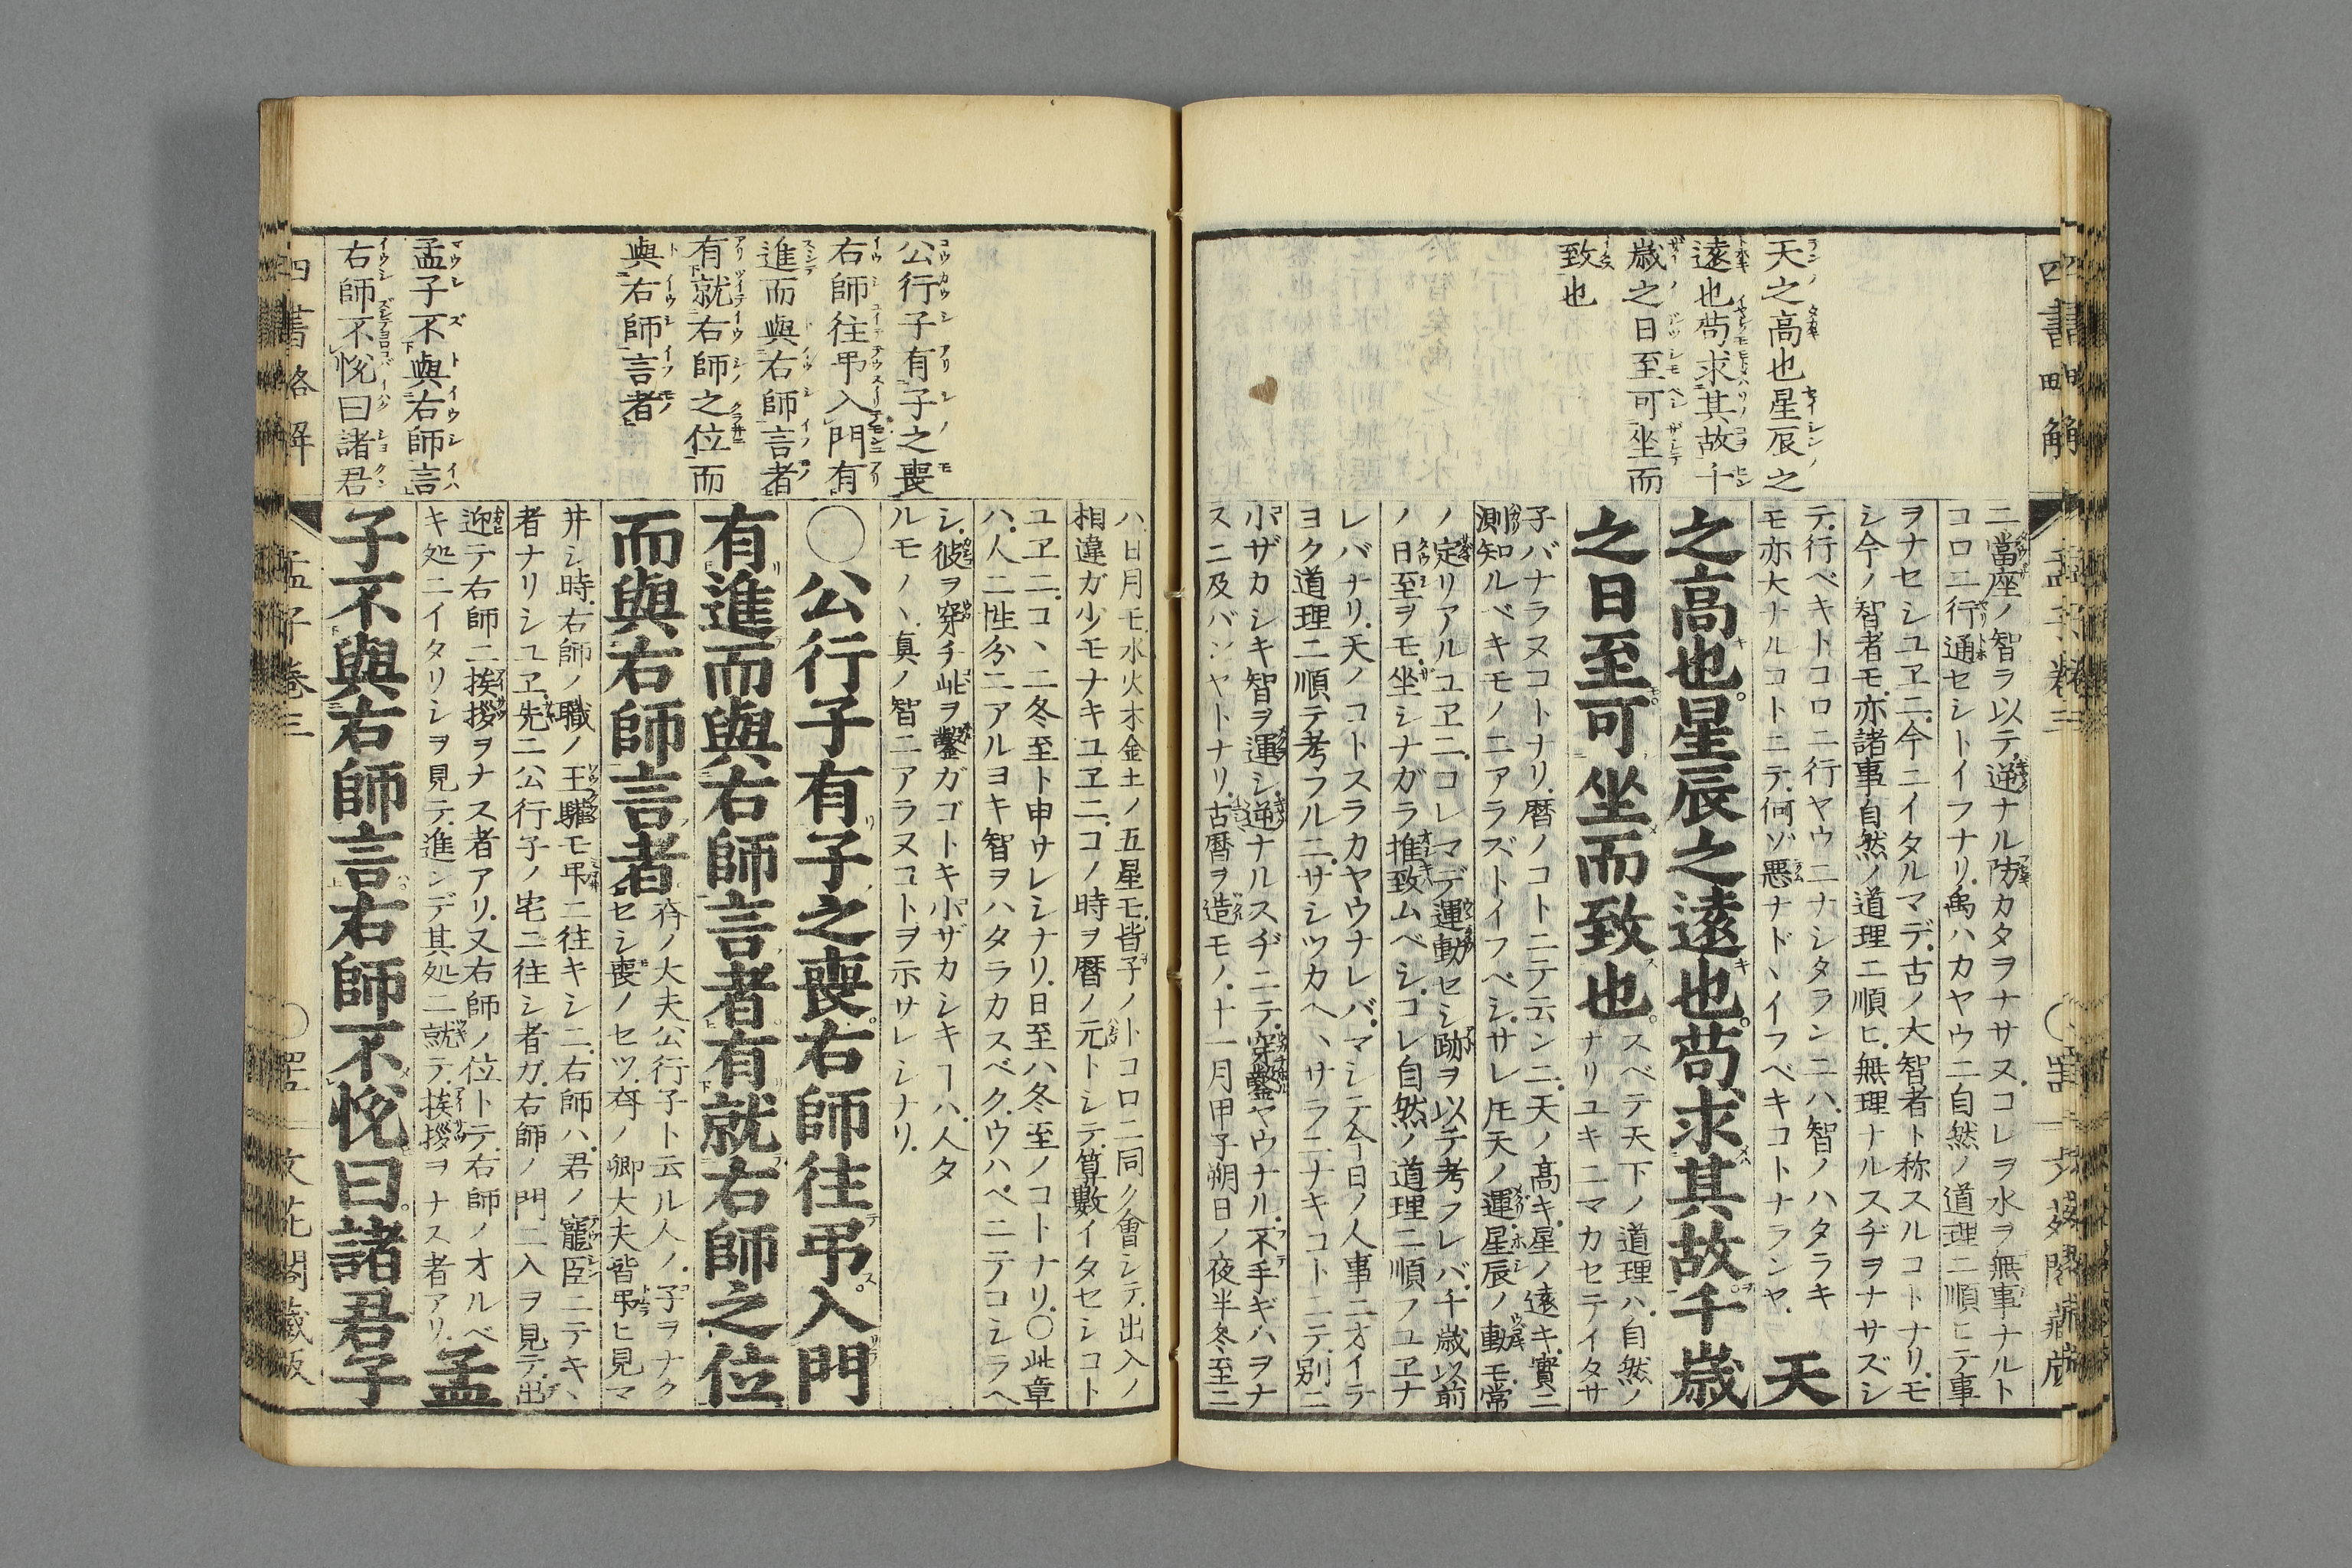 四書略解
孟子巻三
天之高也星辰之
遠也苟求其故千
歳之日至可坐而
致也
ニ當座ノ智ヲ以テ逆ナル防カタヲナサヌコレヲ水ヲ無事ナルト
コロニ行通セシトイフナリ禹ハカヤウニ自然ノ道理ニ順ヒテ事
ヲナセシユヱニ今ニイタルマデ古ノ大智者ト称スルコトナリモ
シ今ノ智者モ亦諸事自然ノ道理ニ順ヒ無理ナルスヂヲナサズシ
テ行ベキトコロニ行ヤウニナシタランニハ智ノハタラキ
モ亦大ナルコトニテ何ゾ悪ナドヽイフベキコトナランヤ
天
之高也星辰之遠也苟求其故千歳
之日至可坐而致也
スベテ天下ノ道理ハ自然ノ
ナリユキニマカセテイタサ
子バナラヌコトナリ暦ノコトニテ云ンニ天ノ高キ星ノ遠キ實ニ
測知ルベキモノニアラズトイフベシサレ𪜈天ノ運星辰ノ動モ常
ノ定リアルユヱニコレマデ運動セシ跡ヲ以テ考フレバ千歳以前
ノ日至ヲモ坐シナガラ推致ムベシコレ自然ノ道理ニ順フユヱナ
レバナリ天ノコトスラカヤウナレバマシテ今日ノ人事ニオイテ
ヨク道理ニ順テ考フルニサシツカヘヽサラニナキコトニテ別ニ
小ザカシキ智ヲ運シ逆ナルスヂニテ穿鑿ヤウナル不手ギハヲナ
スニ及バンヤトナリ古暦ヲ造モノ十一月甲子朔日ノ夜半冬至ニ
公行子有子之喪
右師往弔入門有
進而與右師言者
有就右師之位而
與右師言者
孟子不與右師言
右師不悅曰諸君
ハ日月モ水火木金土ノ五星モ皆子ノトコロニ同ク會シテ出入ノ
相違ガ少モナキユヱニコノ時ヲ暦ノ元トシテ算數イタセシコト
ユヱニコヽニ冬至ト申サレシナリ日至ハ冬至ノコトナリ〇此章
ハ人ニ性分ニアルヨキ智ヲハタラカスベクウハベニテコシラヘ
シ彼ヲ穿チ此ヲ鑿ガゴトキ小ザカシキヿハ人タ
ルモノヽ真ノ智ニアラヌコトヲ示サレシナリ
〇公行子有子之喪右師往弔入門
有進而與右師言者有就右師之位
而與右師言者
齊ノ大夫公行子ト云ル人ノ子ヲナク
セシ喪ノセツ齊ノ卿大夫皆弔ヒ見マ
井シ時右師ノ職ノ王驩モ弔ニ往キシニ右師ハ君ノ寵臣ニテキヽ
者ナリシユヱ先ニ公行子ノ宅ニ往シ者ガ右師ノ門ニ入ヲ見テ出
迎テ右師ニ挨拶ヲナス者アリ又右師ノ位トテ右師ノオルベ
キ処ニイタリシヲ見テ進ンデ其処ニ就テ挨拶ヲナス者アリ
孟
子不與右師言右師不悅曰諸君子
四書略解
孟子巻三
文花閣蔵版